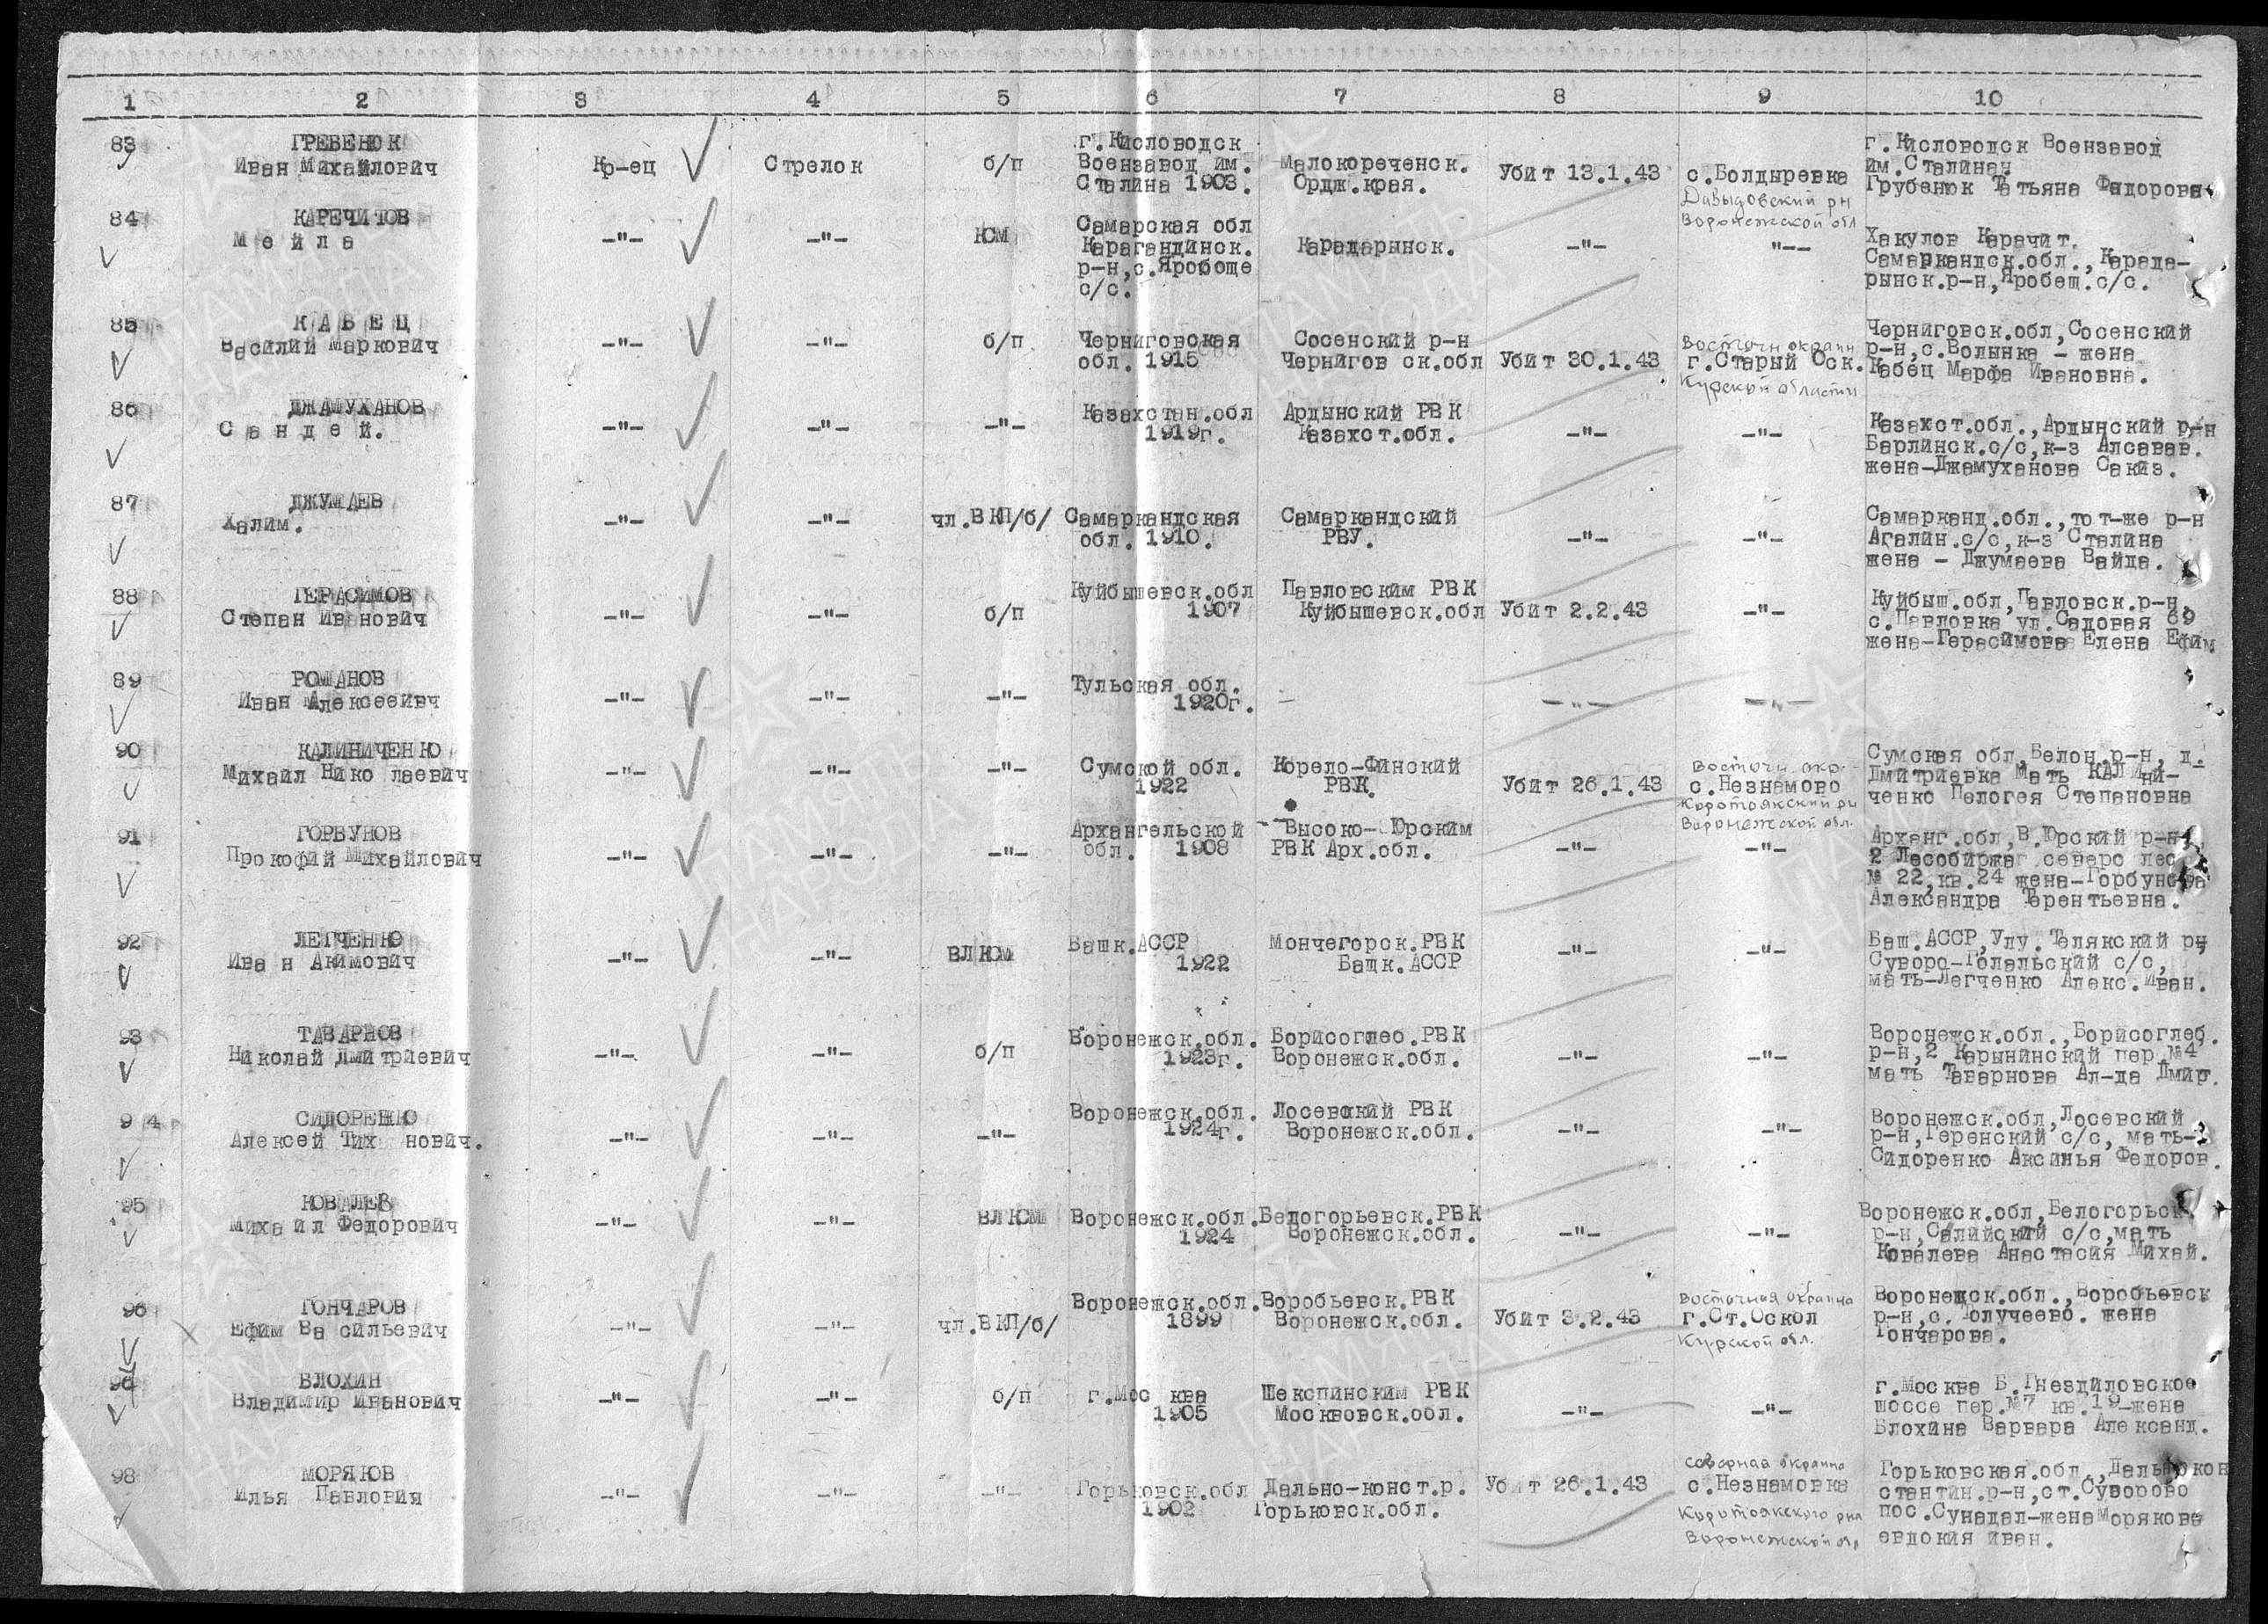 1 2 3 4 5 6 7 8 9 10
83 ГРЕБЕНЮК
Иван Михайлович
Кр-ец
Стрелок
б/п
г.Кисловодск
Воензавод им.
Сталина 1903.
Малокореченск.
Ордж.края.
Убит 13.1.43
с.Болдыревка
Давыдовский рн
Воронежской обл
г.Кисловодск Воензавод
им.Сталинан
Грубенюк Татьяна Федорова
84 КАРЕЧИТОВ
Мейла
-"-
-"-
КСМ
Самарская обл
Карагандинск.
р-н,с.Яробоще
с/с.
Карадарынск.
-"-
"--
Хакулов Карачит.
Самаркандск.обл.,Карада-
рынск.р-н,Яробещ.с/с.
85 КАБЕЦ
Василий Маркович
-"-
-"-
б/п
Черниговская
обл. 1915
Сосенский р-н
Чернигов ск.обл
Убит 30.1.43
Восточн окраин
г.Старый Оск.
Курской области
Черниговск.обл,Сосенский
р-н,с.Волынка - жена
Кабец Марфа Ивановна.
86 ДЖАМУХАНОВ
Сандей.
-"-
-"-
-"-
Казахстан.обл
1919г.
Ардынский РВК
Казахст.обл.
-"-
-"-
Казахст.обл.,Ардынский р-н
Барлинск.с/с,к-з Алсавав.
жена-Джамуханова Сакиз.
87 ДЖУМАЕВ
Халим.
-"-
-"-
чл.ВКП/б/
Самаркандская
обл. 1910.
Самаркандский
РВУ.
-"-
-"-
Самарканд.обл.,тот-же р-н
Агалин.с/с,к-з Сталина
жена - Джумаева Вайда.
88 ГЕРАСИМОВ
Степан Иванович
-"-
-"-
б/п
Куйбышевск.обл
1907
Павловским РВК
Куйбышевск.обл
Убит 2.2.43
-"-
Куйбыш.обл,Павловск.р-н,
с.Павловка ул.Садовая 69
жена-Герасимова Елена Ефим
89 РОМАНОВ
Иван Алексееивч
-"-
-"-
-"-
Тульская обл.
1920г.
-
-"-
-"-
90 КАЛИНИЧЕНКО
Михаил Николаевич
-"-
-"-
-"-
Сумской обл.
1922
Корело-Финский
РВК.
Убит 26.1.43
Восточн. окр.
с.Незнамово
Коротоякский рн
Воронежской обл.
Сумская обл,Белон.р-н, д.
Дмитриевка Мать КАЛИни-
ченко Пелогея Степановна
91 ГОРБУНОВ
Прокофий Михайлович
-"-
-"-
-"-
Архангельской
обл. 1908
Высоко-Юрским
РВК Арх.обл.
-"-
-"-
Арханг.обл,В.Юрский р-н
2 Лесобиржа северо лес
№ 22,кв.24 жена-Горбунова
Александра Терентьевна.
92 ЛЕГЧЕНКО
Иван Акимович
-"-
-"-
ВЛКСМ
Башк.АССР
1922
Мончегорск.РВК
Башк.АССР
-"-
-"-
Баш.АССР,Улу.Телякский рн
Суворо-Голальский с/с,
мать-Легченко Алекс.Иван.
93 ТАВАРНОВ
Николай Дмитриевич
-"-
-"-
б/п
Воронежск.обл.
1923г.
Борисоглеб.РВК
Воронежск.обл.
-"-
-"-
Воронежск.обл.,Борисоглеб.
р-н,2 Карынинский пер №4
мать Таварнова Ал-да Дмит.
94 СИДОРЕНКО
Алексей Тих нович.
-"-
-"-
-"-
Воронежск.обл.
1924г.
Лосевский РВК
Воронежск.обл.
-"-
-"-
Воронежск.обл,Лосевский
р-н,Геренский с/с, мать-
Сидоренко Аксинья Федоров.
95 КОВАЛЕВ
Михаил Федорович
-"-
-"-
ВЛКСМ
Воронежск.обл.
1924
Белогорьевск.РВК
Воронежск.обл.
-"-
-"-
Воронежск.обл,Белогорьск
р-н,Салийский с/с,мать
Ковалева Анастасия Михай.
96 ГОНЧАРОВ
Ефим Васильевич
-"-
-"-
чл.ВКП/б/
Воронежск.обл.
1899
Воробьевск.РВК
Воронежск.обл.
Убит 3.2.43
Восточная окраина
г.Ст.Оскол
Курской обл.
Воронежск.обл.,Воробьевск
р-н,с.Толучеево. жена
Гончарова.
БЛОХИН
Владимир Иванович
-"-
-"-
б/п
г.Москва
1905
Шекспинским РВК
Москвовск.обл.
-"-
-"-
г.Москва Б.Гнездиловское
шоссе пер.№7 кв.19-жена
Блохина Варвара Александ.
98 МОРЯКОВ
Илья Павловия
-"-
-"-
-"-
Горьковск.обл
1902
Дально-конст.р.
Горьковск.обл.
Убит 26.1.43
северная окраина
с.Незнамовка
Коротоякского рна
Воронежской обл
Горьковская.обл.,Дальнокон
стантин.р-н,ст.Суворово
пос.Сунадал-жена Морякова
евдокия иван.